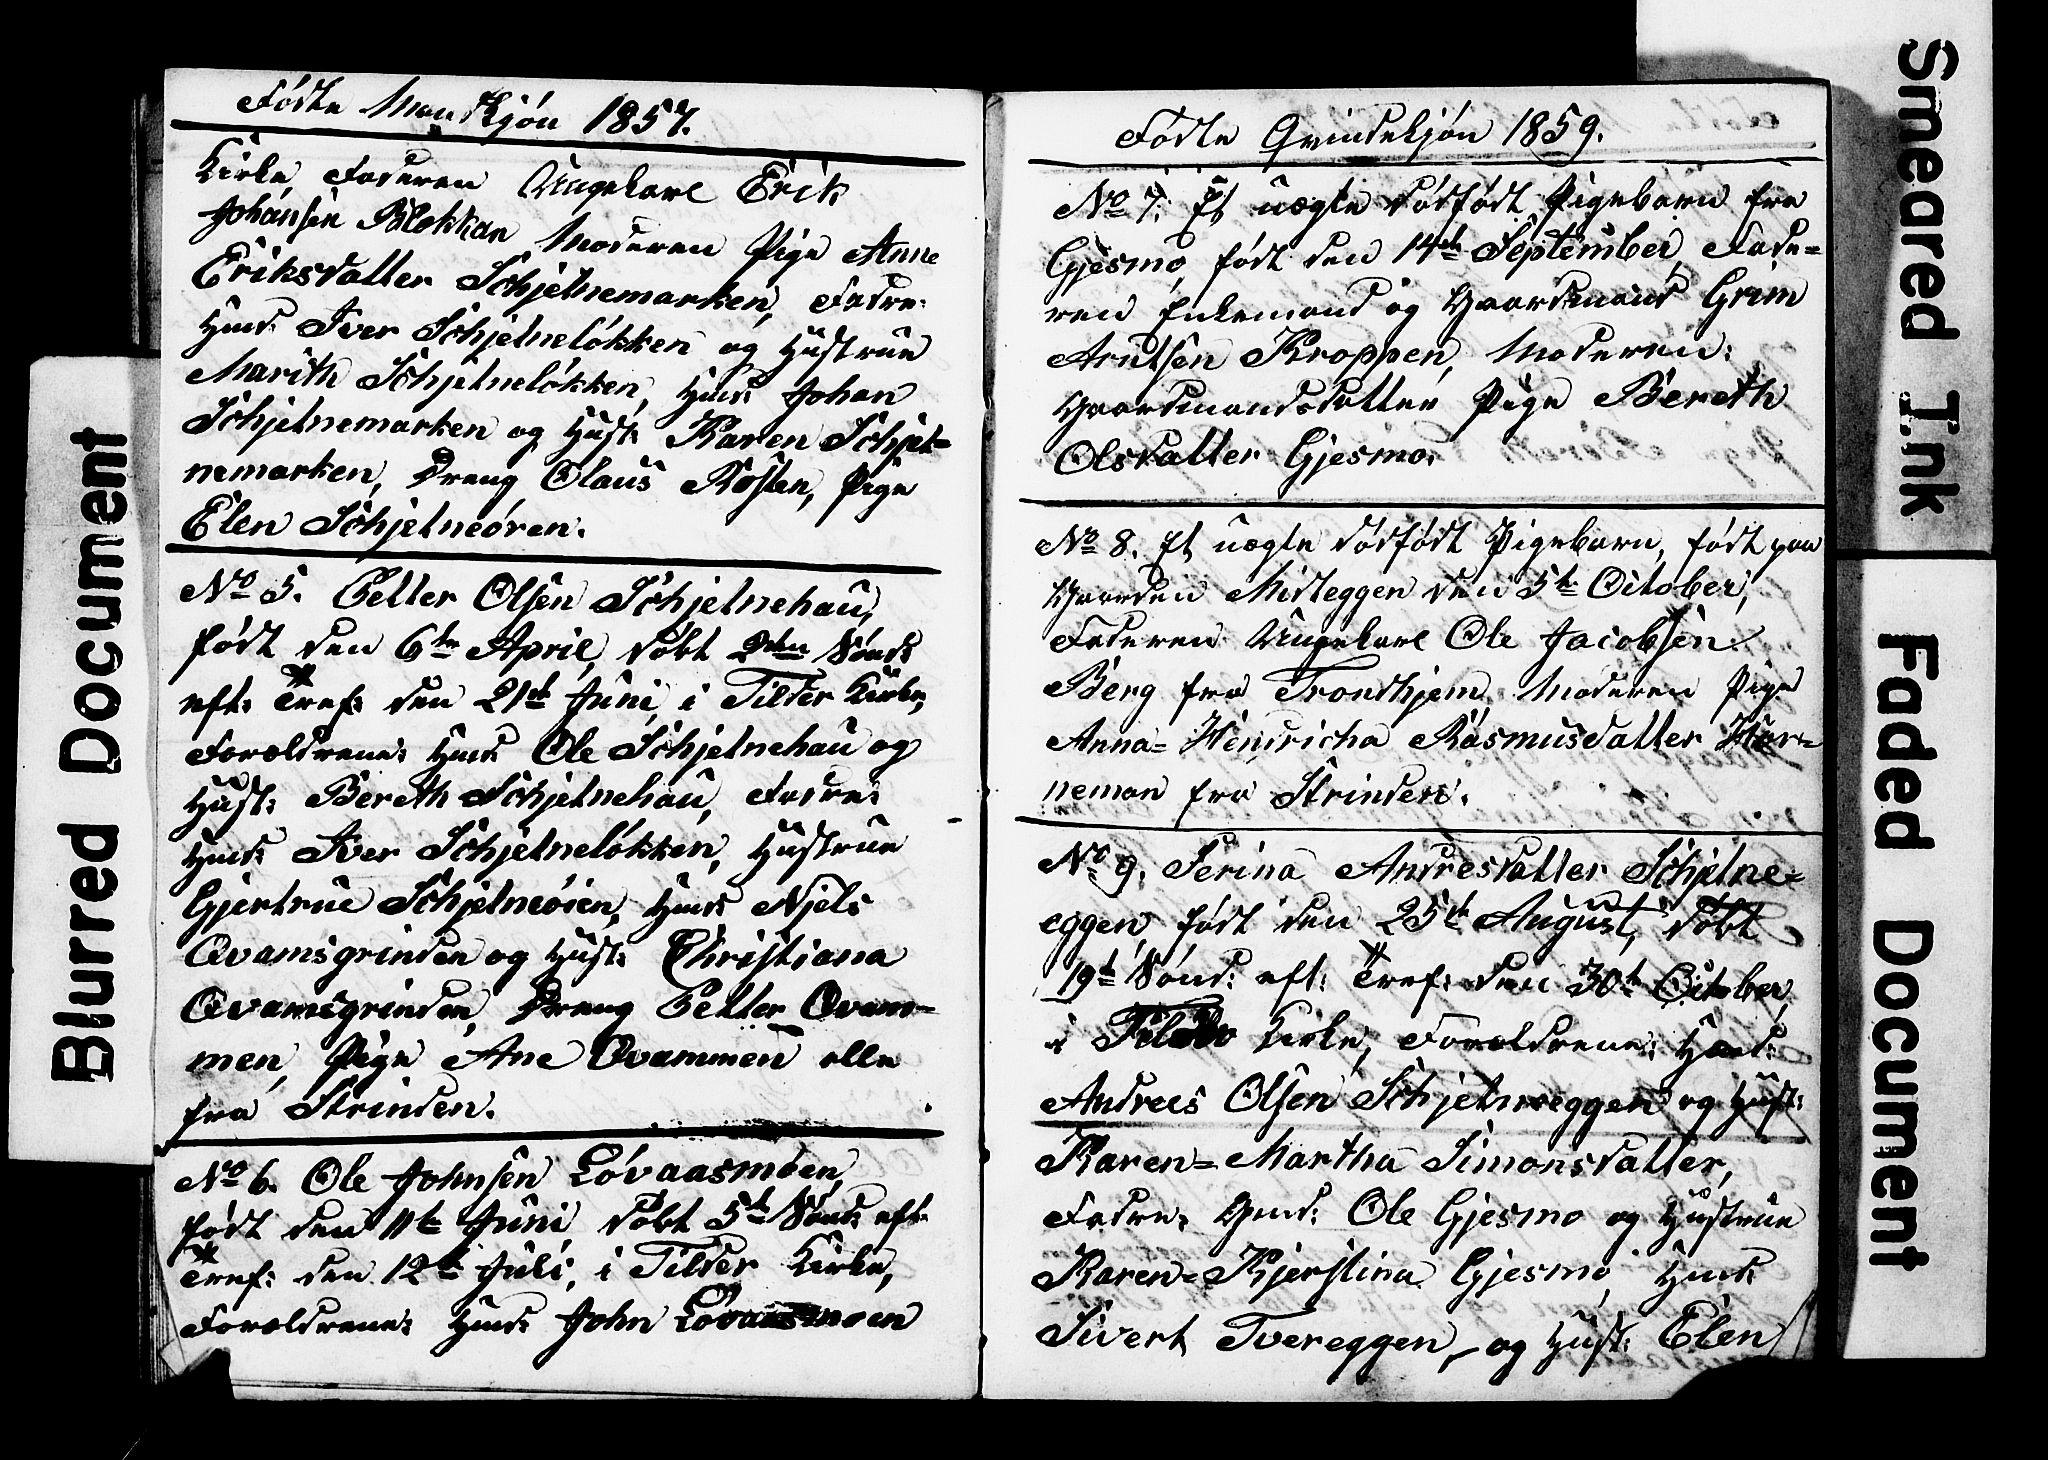 Fødte MandKjøn 1857.
Kirke, Faderen Ungekarl Erik
Johansen Blokkan, Moderen Pige Anne
Eriksdatter Schjelnemarken, Fadre:
Hmd: Iver Schjelneløkken og Hustrue
Marith Schjelneløkken, Hmd: Johan
Schjelnemarken og Hust: Karen Schjel=
nemarken, Dreng Olaus Røsten, Pige
Elen Schjelneøren.
No 5. Petter Olsen Schjelnehau,
født den 6te April, døbt 2den Sønd:
eft: Tref: den 21de Juni, i Tilder Kirke,
Forældrene: Hmd: Ole Schjelnehau og
Hust: Bereth Schjelnehau, Fadre:
Hmd: Iver Schjelneløkken, Hustrue
Gjertrue Schjelneøien, Hmd: Njels
Qvamsgrinden og Hust: Christiana
Qvamsgrinden, Dreng Petter Qvam=
men, Pige Ane Qvammen alle
fra Strinden.
No 6. Ole Johnsen Løvaasmoen,
født den 11te Juni, døbt 5te Sønd: eft:
Tref: den 12te Juli, i Tilder Kirke,
Forældrene: Hmd: John Løvaasmoen
Fødte Qvindekjøn 1859.
No 7. Et uægte dødfødt Pigebarn fra
Gjesmo, født den 14de September, Fade=
ren Enkemand og Gaardmand Grim
Arntsen Kroppen, Moderen:
Gaardmandsdatter Pige Bereth
Olsdatter Gjesmo.
No 8. Et uægte dødfødt Pigebarn, født paa
Gaarden Midteggen den 5te October,
Faderen Ungekarl Ole Jacobsen
Berg fra Trondhjem, Moderen Pige
Anna= Hendricha Rasmusdatter Hor=
neman fra Strinden.
No 9. Serina Andresdatter Schjelne=
eggen, født den 25de August, døbt
19de Sønd: eft: Tref: den 30te October,
i Tilder Kirke, Forældrene: Hmd:
Andrees Olsen Schjelneeggen og Hust:
Karen=Martha Simonsdatter,
Fadre: Gmd: Ole Gjesmo og Hustrue
Karen=Kjerstina Gjesmo, Hmd:
Sivert Tvereggen, og Hust: Elen
Blurred Document
Smeared Ink
Faded Document